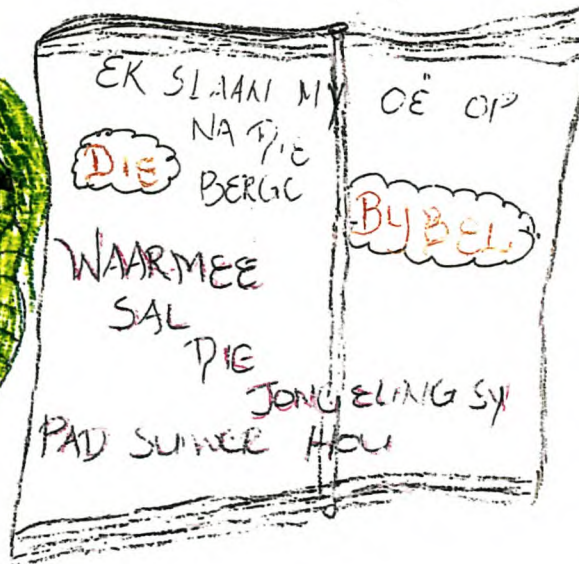 EK SLAAN MY OË OP
NA DIE
BERGE
DIE BYBEL
WAARMEE
SAL
DIE
JONGELING SY
PAD SUIWER HOU